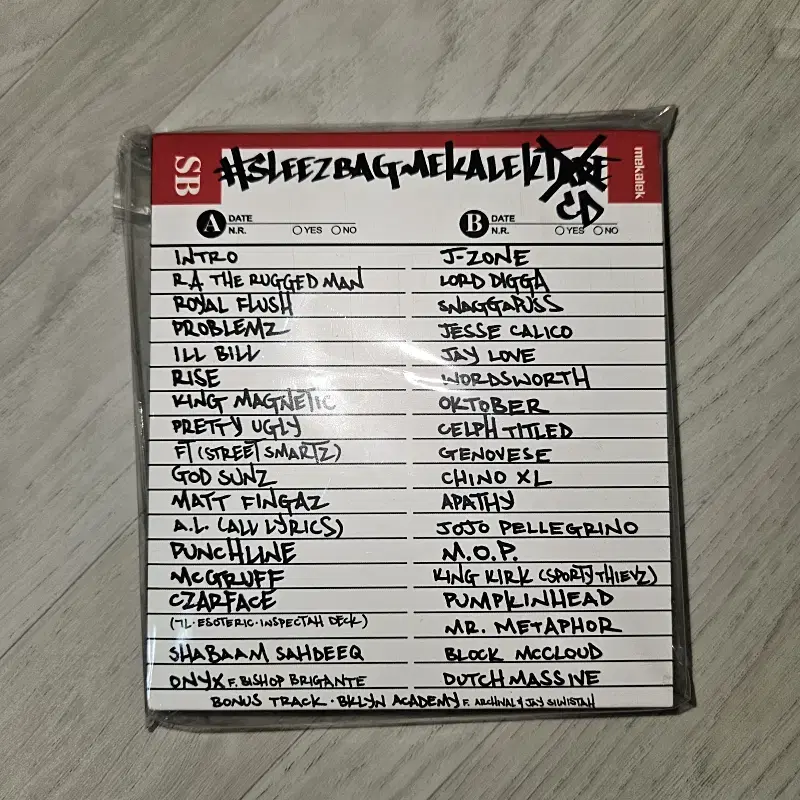 SB
#SLEEZBAGMEKALEKTAPE
CD
mekalek
A DATE
N.R. YES NO
B DATE
N.R. YES NO
INTRO
R.A. THE RUGGED MAN
ROYAL FLUSH
PROBLEMZ
ILL BILL
RISE
KING MAGNETIC
PRETTY UGLY
FT (STREET SMARTZ)
GOD SUNZ
MATT FINGAZ
A.L. (ALL LYRICS)
PUNCHLINE
MCGRUFF
CZARFACE
(7L·ESOTERIC·INSPECTAH DECK)
SHABAAM SAHDEEQ
ONYX F. BISHOP BRIGANTE
J-ZONE
LORD DIGGA
SNAGGAPUSS
JESSE CALICO
JAY LOVE
WORDSWORTH
OKTOBER
CELPH TITLED
GENOVESE
CHINO XL
APATHY
JOJO PELLEGRINO
M.O.P.
KING KIRK (SPORTY THIEVZ)
PUMPKINHEAD
MR. METAPHOR
BLOCK MCCLOUD
DUTCHMASSIVE
BONUS TRACK · BKLYN ACADEMY F. ARCHIVAL & JAY SIWISTAH